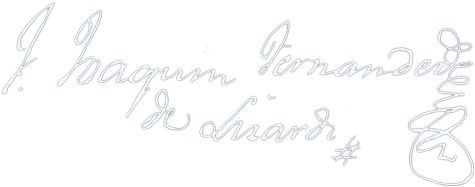 J. Joaquim Fernandez
de Liardi